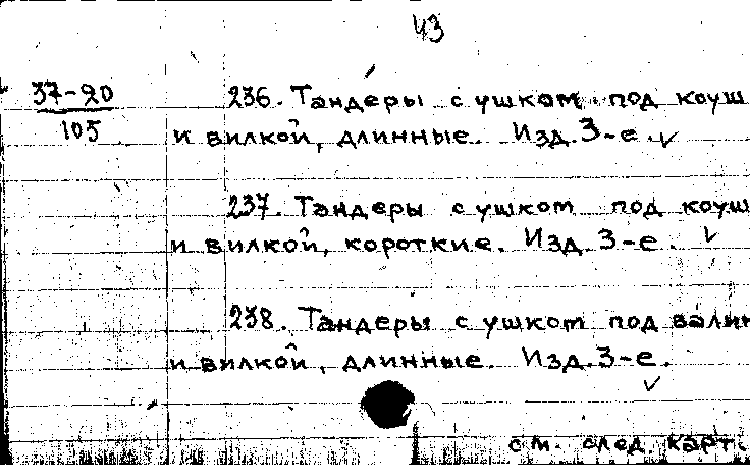 43
37-20
105
236. Тандеры с ушком под коуш
и вилкой, длинные. Изд. 3-е.
237. Тандеры с ушком под коуш
и вилкой, короткие. Изд. 3-е.
238. Тандеры с ушком под валик
и вилкой, длинные. Изд. 3-е.
см. след карт.